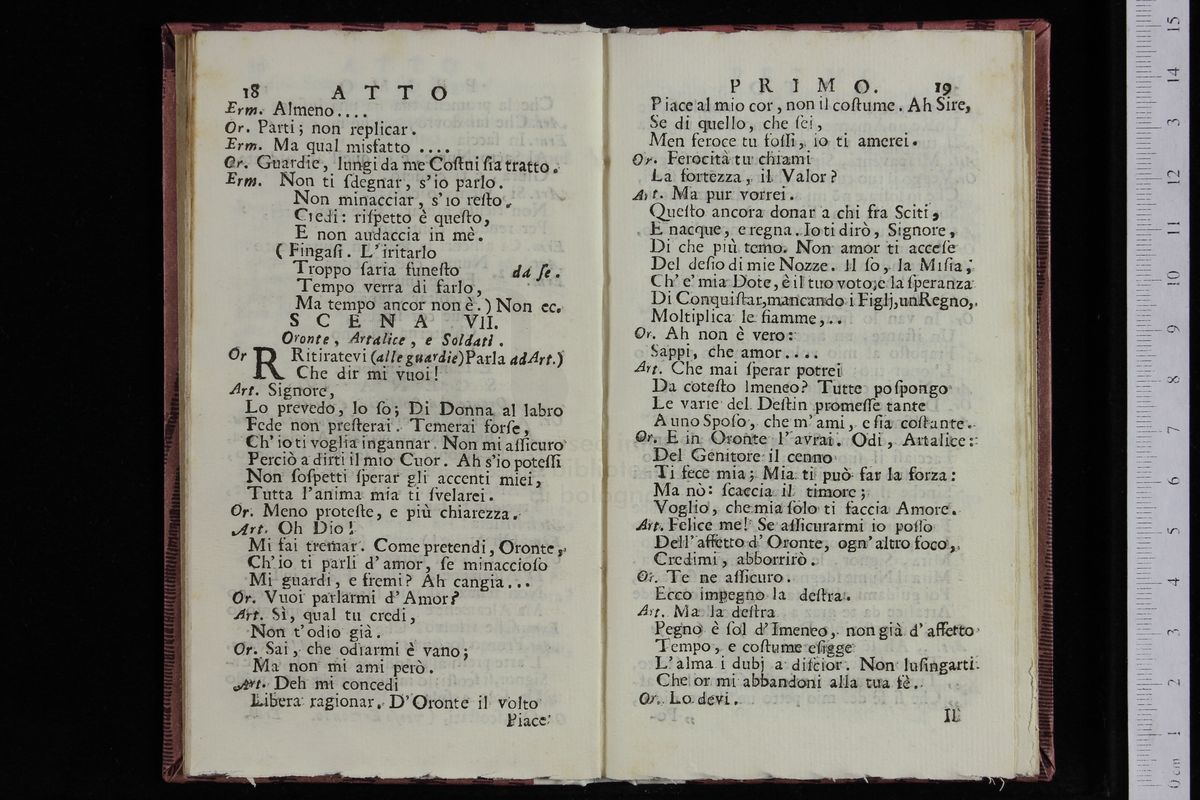 18 ATTO
Erm. Almeno....
Or. Parti; non replicar.
Erm. Ma qual misfatto ....
Or. Guardie, lungi da me Costui sia tratto.
Erm. Non ti sdegnar, s'io parlo.
Non minacciar, s'io resto.
Credi: rispetto è questo,
E non audaccia in mè.
( Fingasi. L'iritarlo
Troppo saria funesto da se.
Tempo verra di farlo,
Ma tempo ancor non è.) Non ec.
SCENA VII.
Oronte, Artalice, e Soldati.
Or R Ritiratevi (alle guardie) Parla ad Art.)
Che dir mi vuoi!
Art. Signore,
Lo prevedo, lo so; Di Donna al labro
Fede non presterai. Temerai forse,
Ch'io ti voglia ingannar. Non mi assicuro
Perciò a dirti il mio Cuor. Ah s'io potessi
Non sospetti sperar gli accenti miei,
Tutta l'anima mia ti svelarei.
Or. Meno proteste, e più chiarezza.
Art. Oh Dio!
Mi fai tremar. Come pretendi, Oronte,
Ch'io ti parli d'amor, se minaccioso
Mi guardi, e fremi? Ah cangia...
Or. Vuoi parlarmi d'Amor?
Art. Sì, qual tu credi,
Non t'odio già.
Or. Sai, che odiarmi è vano;
Ma non mi ami però.
Art. Deh mi concedi
Libera ragionar. D'Oronte il volto
Piace
PRIMO. 19
Piace al mio cor, non il costume. Ah Sire,
Se di quello, che sei,
Men feroce tu fossi, io ti amerei.
Or. Ferocità tu chiami
La fortezza, il Valor?
Art. Ma pur vorrei.
Questo ancora donar a chi fra Sciti,
E nacque, e regna. Io ti dirò, Signore,
Di che più temo. Non amor ti accese
Del desio di mie Nozze. Il so, la Misia,
Ch'e' mia Dote, è il tuo voto; e la speranza
Di Conquistar, mancando i Figlj, un Regno,
Moltiplica le fiamme,..
Or. Ah non è vero:
Sappi, che amor....
Art. Che mai sperar potrei
Da cotesto Imeneo? Tutte pospongo
Le varie del Destin promesse tante
A uno Sposo, che m'ami, e sia costante.
Or. E in Oronte l'avrai. Odi, Artalice:
Del Genitore il cenno
Ti fece mia; Mia ti può far la forza:
Ma nò: scaccia il timore;
Voglio, che mia solo ti faccia Amore.
Art. Felice me! Se assicurarmi io posso
Dell'affetto d'Oronte, ogn'altro foco,
Credimi, abborrirò.
Or. Te ne assicuro.
Ecco impegno la destra.
Art. Ma la destra
Pegno è sol d'Imeneo, non già d'affetto
Tempo, e costume esigge
L'alma i dubj a discior. Non lusingarti
Che or mi abbandoni alla tua fè.
Or. Lo devi.
Il